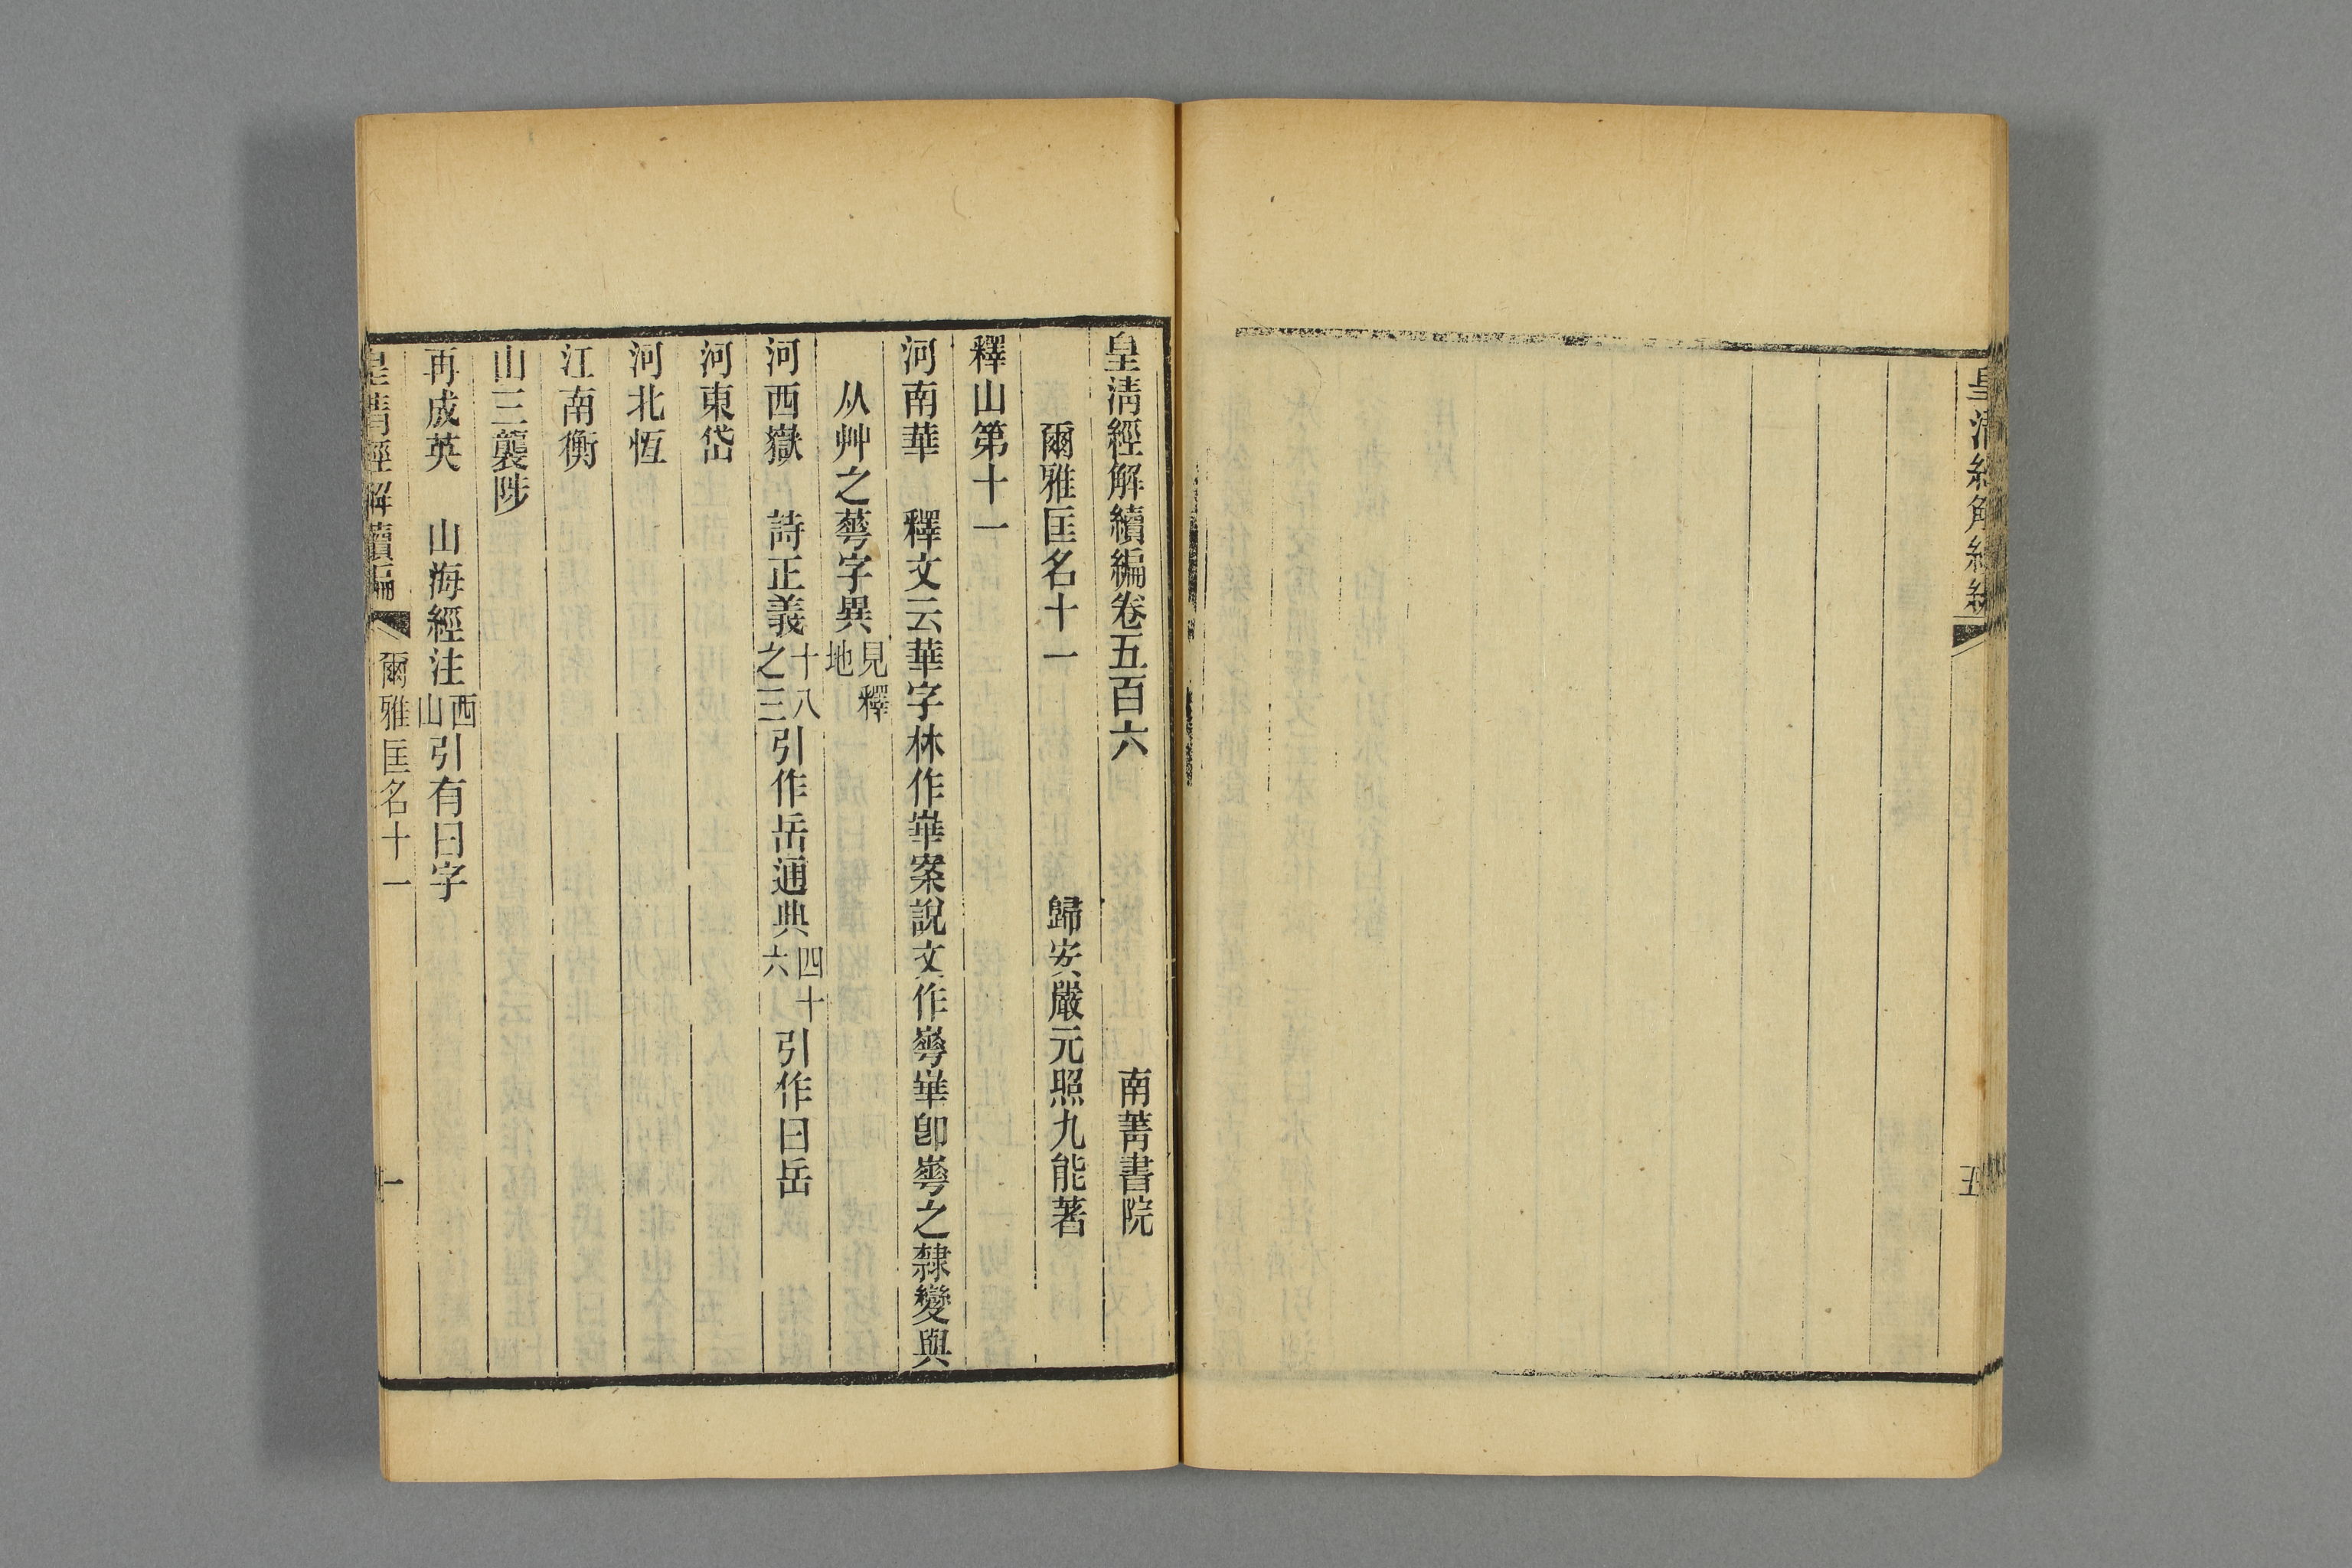 皇清經解續編卷五百六　　　　　南菁書院
爾雅匡名十一　　　　　歸安嚴元照九能著
釋山第十一
河南華　釋文云華字林作崋案說文作𡼙崋卽𡼙之隸變與
从艸之蕐字異見釋地
河西嶽　詩正義十八之三引作岳通典四十六引作曰岳
河東岱
河北恆
江南衡
山三襲陟
再成英　山海經注西山引有曰字
皇清經解續編　爾雅匡名十一　一
皇清經解續編
五